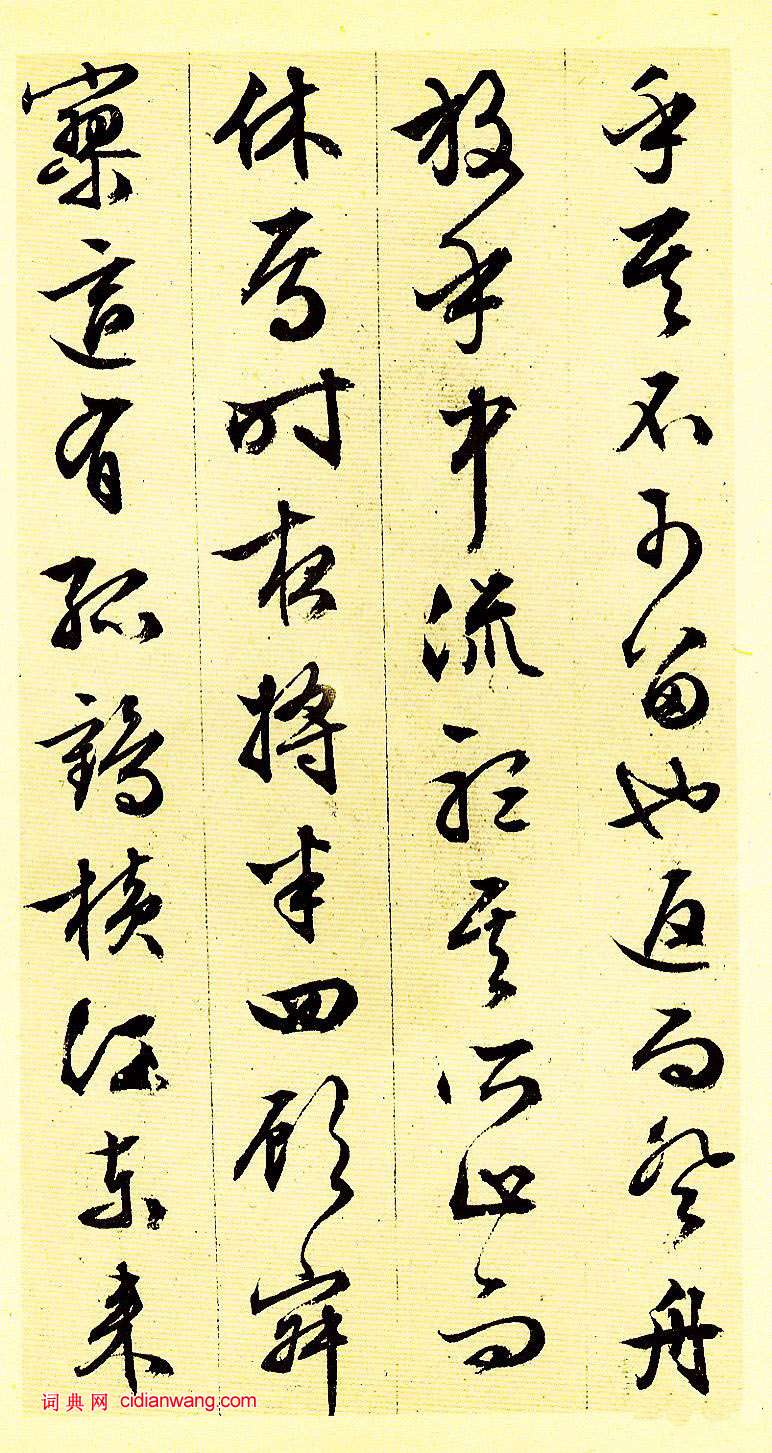 乎其不可留也返而登舟
放乎中流聽其所止而
休焉時夜將半四顧寂
寥適有孤鶴橫江東來
词典网 cidianwang.com